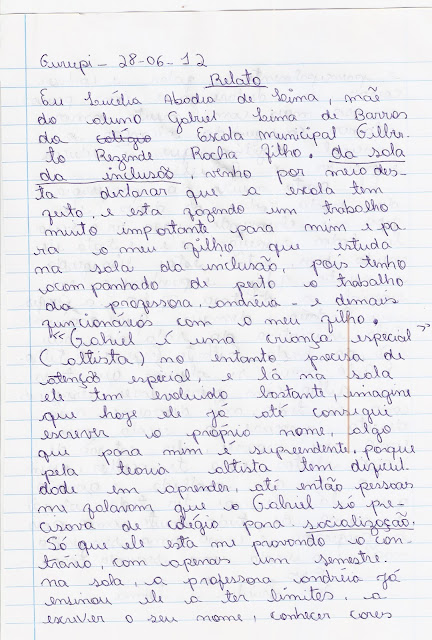 Gurupi - 28-06-12
Relato
Eu Lucélia Abadia de Lima, mãe
do aluno Gabriel Lima de Barros
da colégio Escola municipal Gilber-
to Rezende Rocha Filho. da sala
da inclusão, venho por meio des-
ta declarar que a escola tem
feito, e esta fazendo um trabalho
muito importante para mim e pa
ra o meu filho que estuda
na sala da inclusão, pois tenho
acompanhado de perto o trabalho
da professora andréia e demais
funcionários com o meu filho.
"Gabriel é uma criança especial"
(altista) no entanto precisa de
atenção especial, e lá na sala
ele tem evoluido bastante, imagine
que hoje ele já até consigui
escrever o próprio nome, algo
que para mim é supreendente, porque
pela teoria altista tem dificul
dade em aprender, até então pessoas
me falavam que o Gabriel só pre-
cisava de colégio para socialização.
Só que ele está me provando o con-
trário, com apenas um semestre.
na sala, a professora andréia já
ensinou ele a ter limites, a
escrever o seu nome, conhecer cores